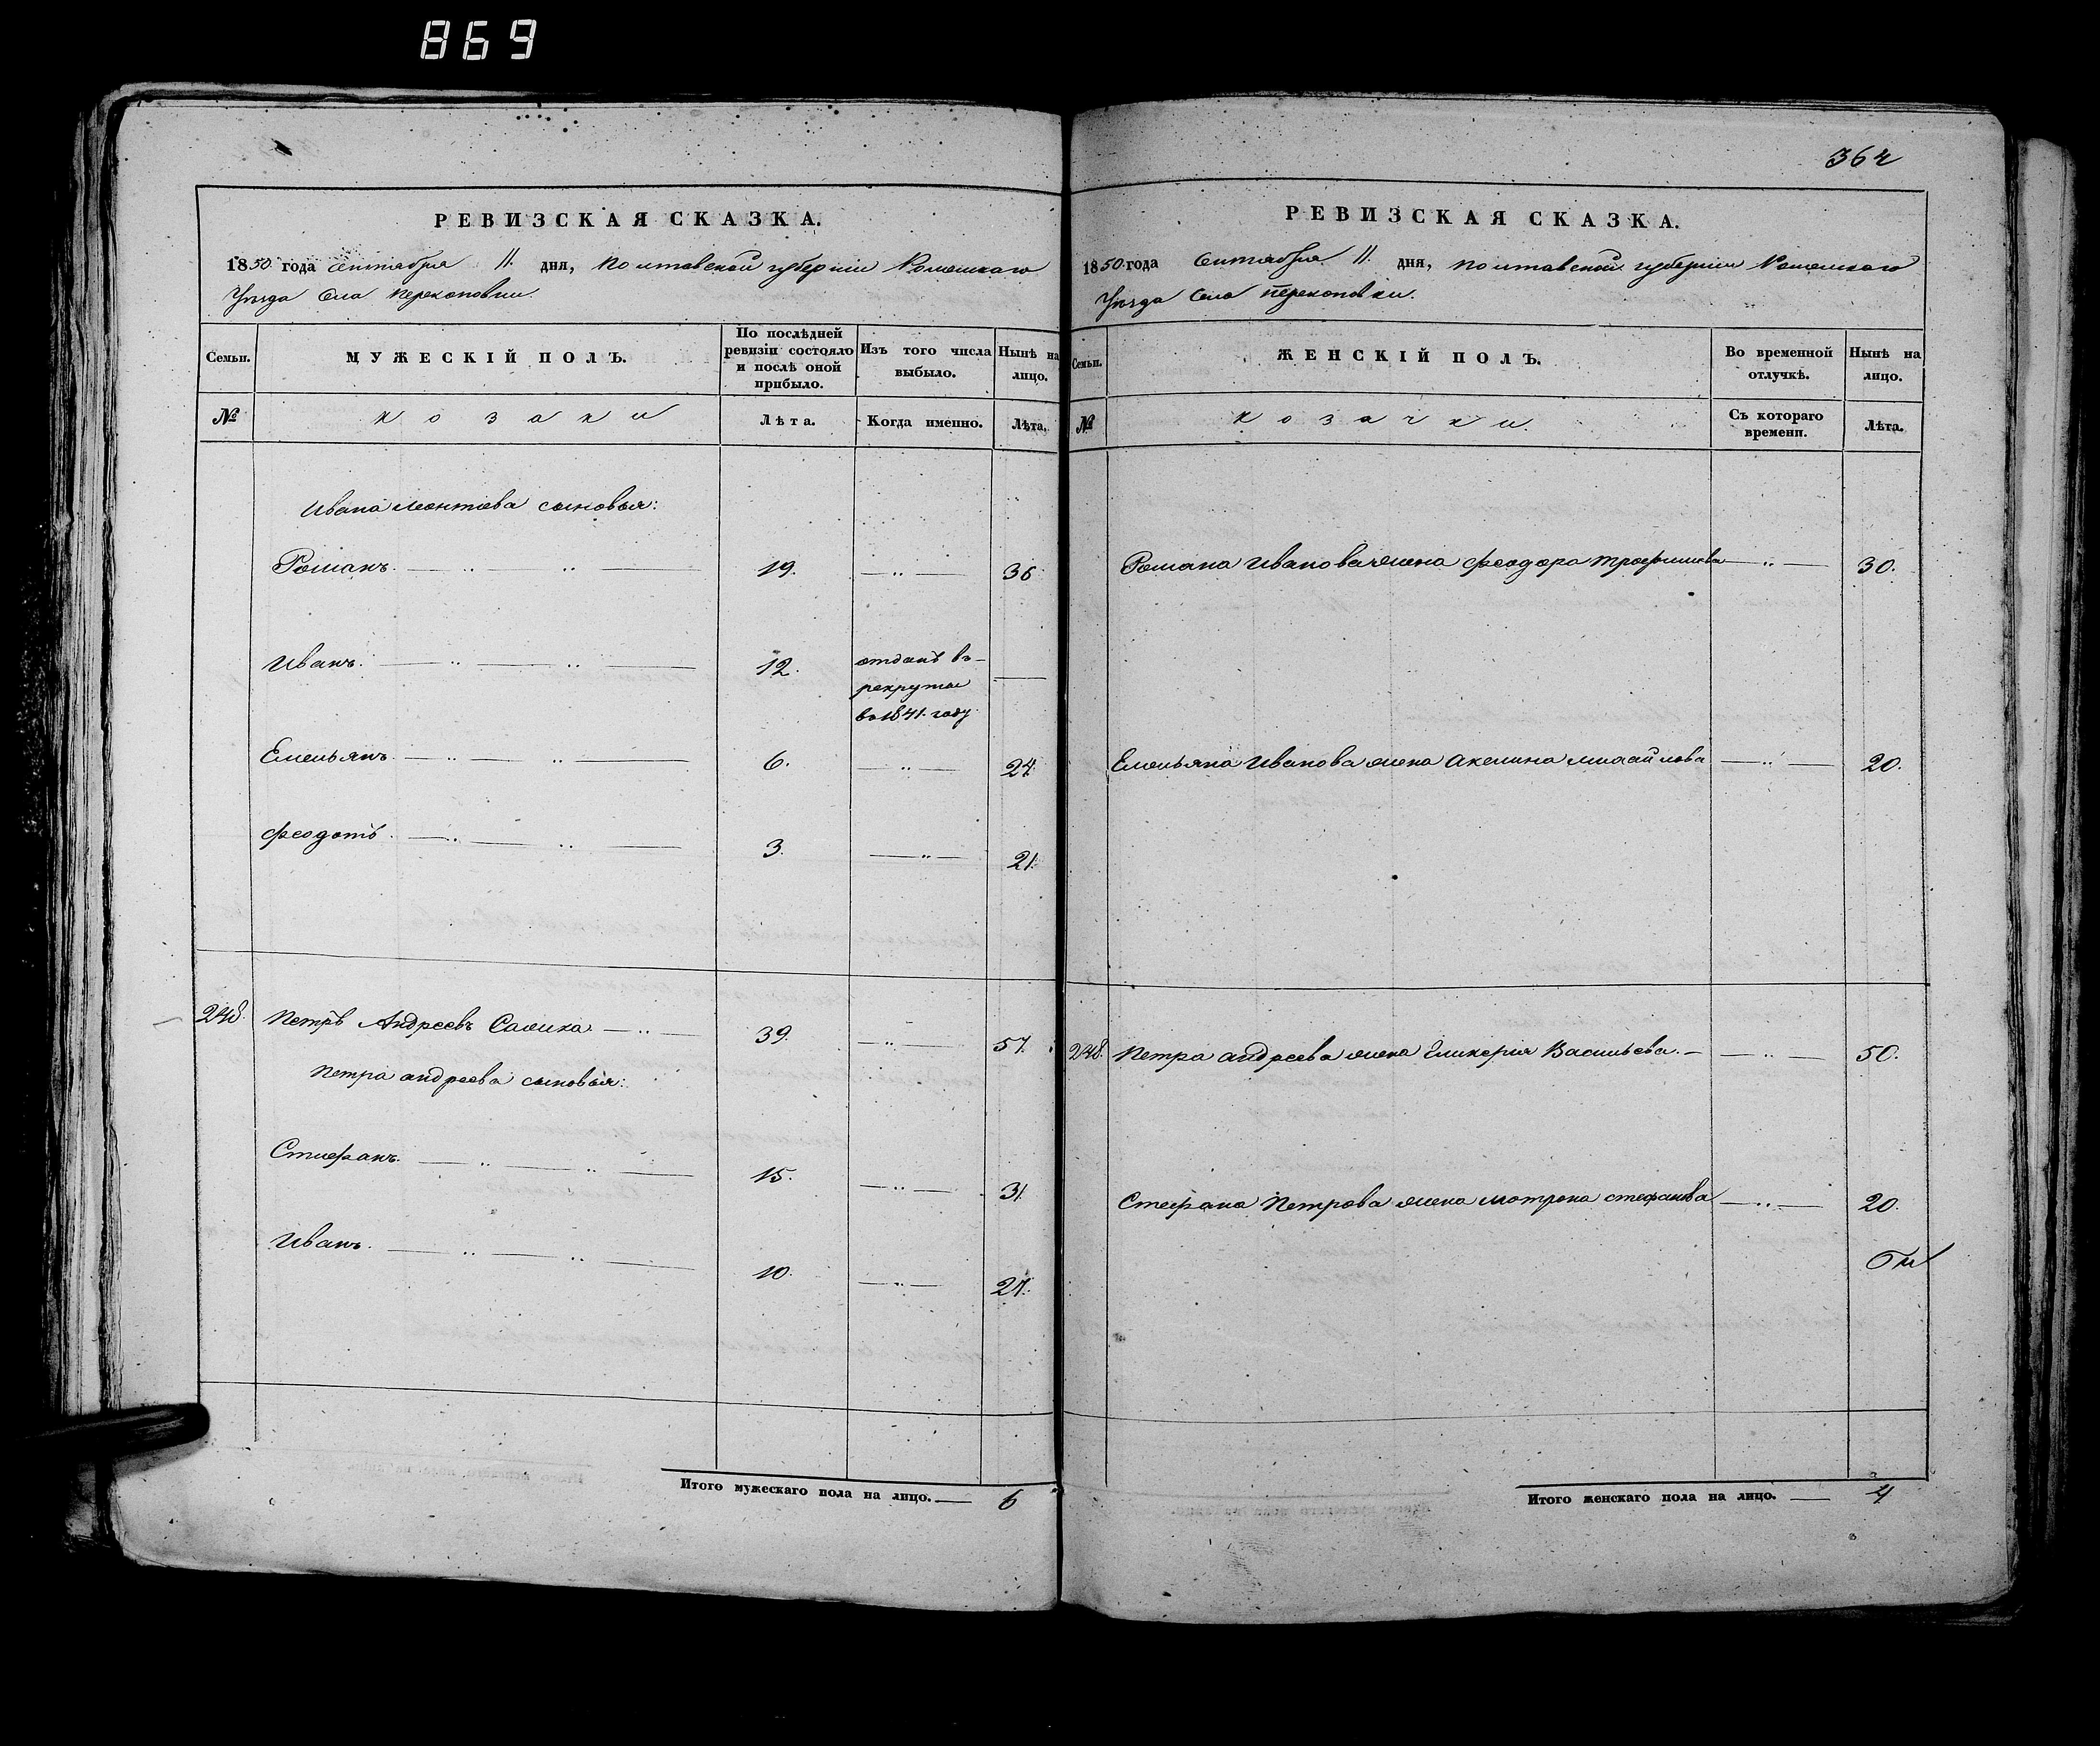 869
РЕВИЗСКАЯ СКАЗКА.
1850 года Сентября 11. дня, Полтавской губерніи Роменскаго
Уѣзда Села Перекоповки.
Семьи. МУЖЕСКІЙ ПОЛЪ. По послѣдней ревизіи состояло и послѣ оной прибыло. Изъ того числа выбыло. Нынѣ на лицо.
№ козаки Лѣта. Когда именно. Лѣта.
Ивана Леонтіева сыновья:
Романъ. 19. 36
Иванъ. 12. отданъ въ
рекруты
въ 1841. году
Емельянъ. 6. 24.
Феодотъ. 3. 21.
248. Петръ Андреевъ 39. 57.
Петра Андреева сыновья:
Стефанъ. 15. 31.
Иванъ. 10. 27.
Итого мужескаго пола на лицо. 6
362
РЕВИЗСКАЯ СКАЗКА.
1850 года Сентября 11. дня, Полтавской губерніи Роменскаго
Уѣзда Села Перекоповки.
Семьи. ЖЕНСКІЙ ПОЛЪ. Во временной отлучкѣ. Нынѣ на лицо.
№ козачки. Съ котораго времени. Лѣта.
Романа Иванова жена Феодора Трофимова 30.
Емельяна Иванова жена Акелина Михайлова 20.
248. Петра Андреева жена Гликерія Васильева. 50.
Стефана Петрова жена Мотрона Стефанова 20.
Итого женскаго пола на лицо. 4